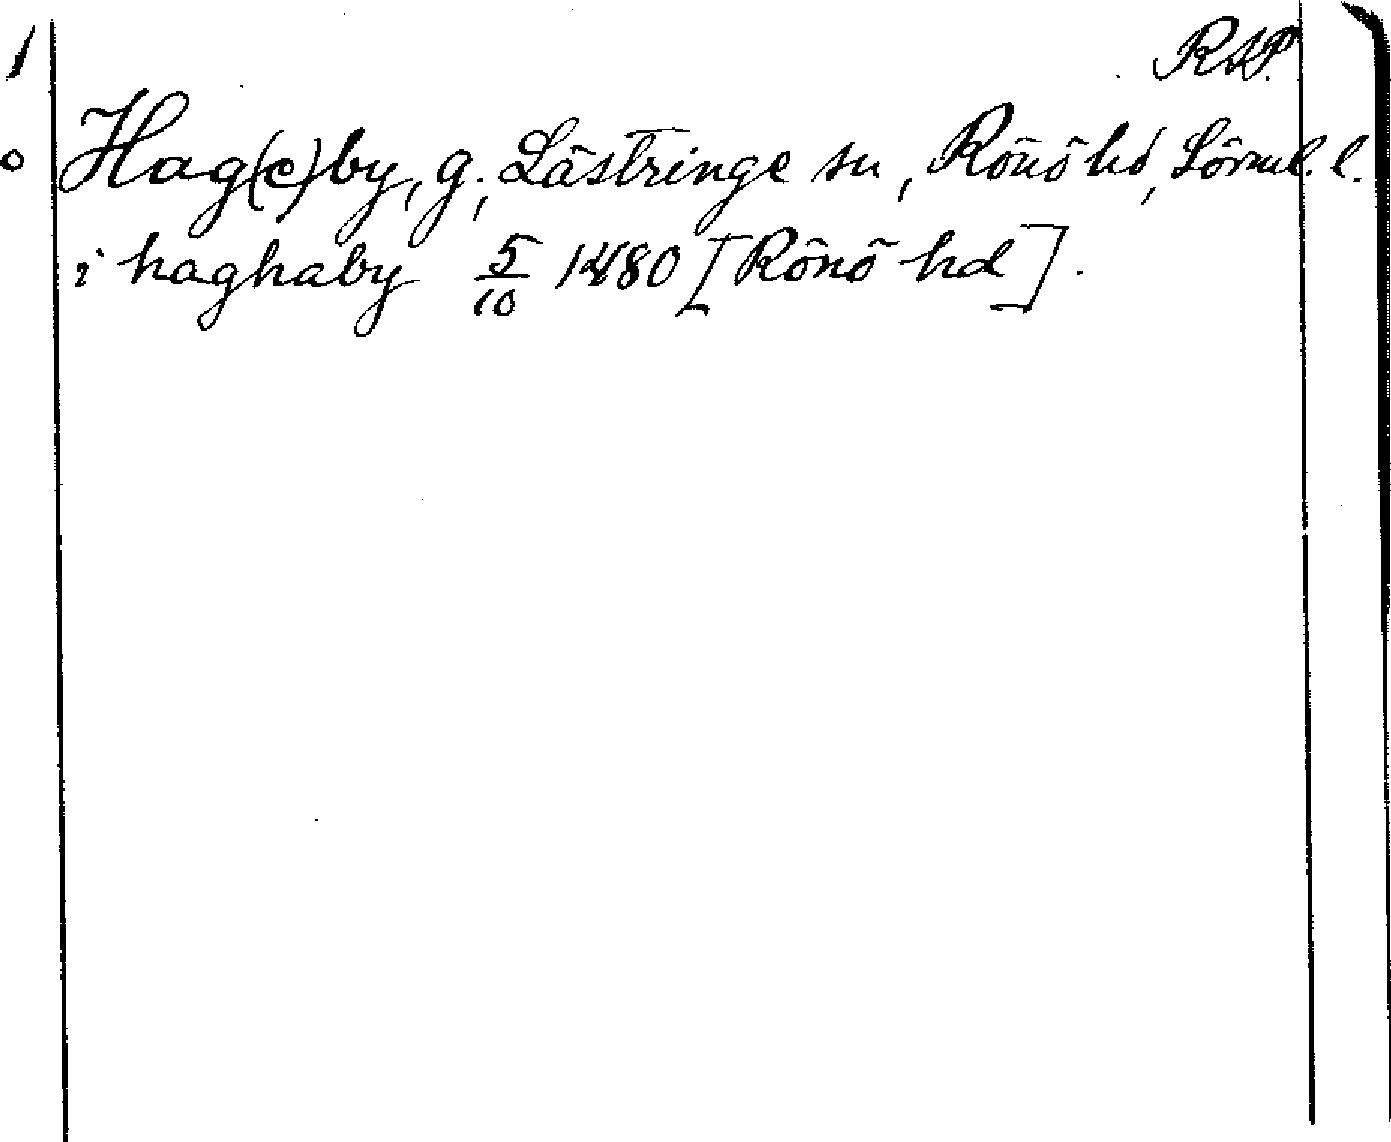 1 RAP.
o Hag(e)by, g., Lästringe sn, Rönö hd, Sörml. l.
i haghaby 5/10 1480 [Rönö hd].